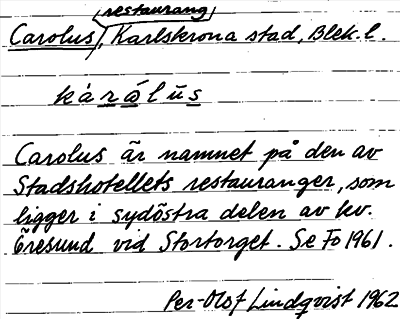 restaurang
Carolus, Karlskrona stad, Blek. l.
kárálùs
Carolus är namnet på den av
Stadshotellets restauranger, som
ligger i sydöstra delen av kv.
Öresund vid Stortorget. Se Fo 1961.
Per-Olof Lindqvist 1962